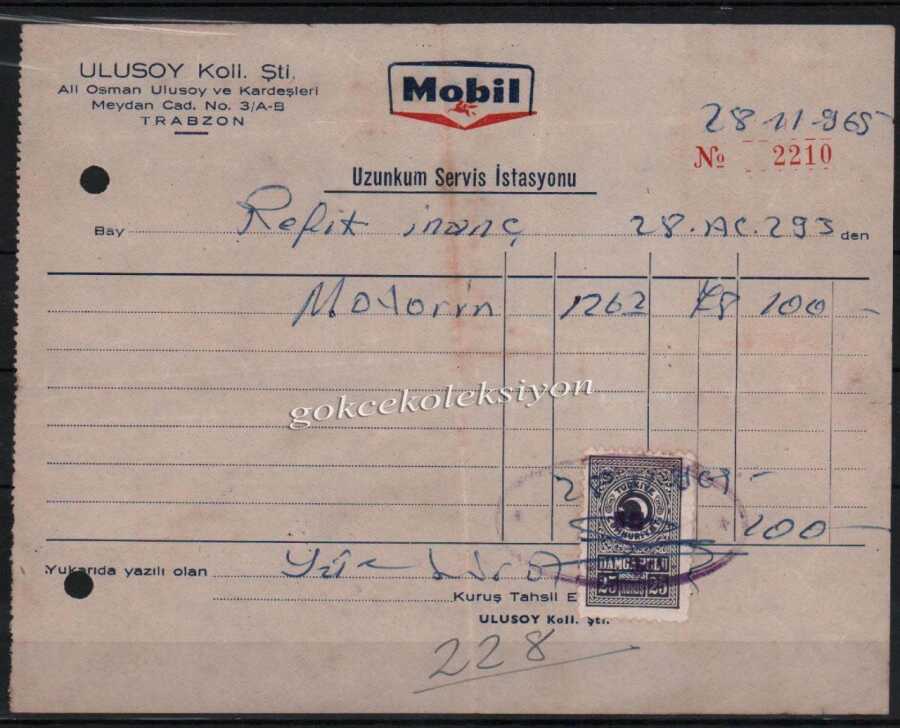 ULUSOY Koll. Şti.
Ali Osman Ulusoy ve Kardeşleri
Meydan Cad. No. 3/A-B
TRABZON
Mobil
28-11-965
№ 2210
Uzunkum Servis İstasyonu
Bay Refik inanç 28.AC.293 den
Motorin 1262 100-
gokcekoleksiyon
TÜRKİYE
100-
DAMGA PULU
25 KURUŞ 25
Yukarıda yazılı olan Yüz
Kuruş Tahsil E
ULUSOY Koll. Şti.
228